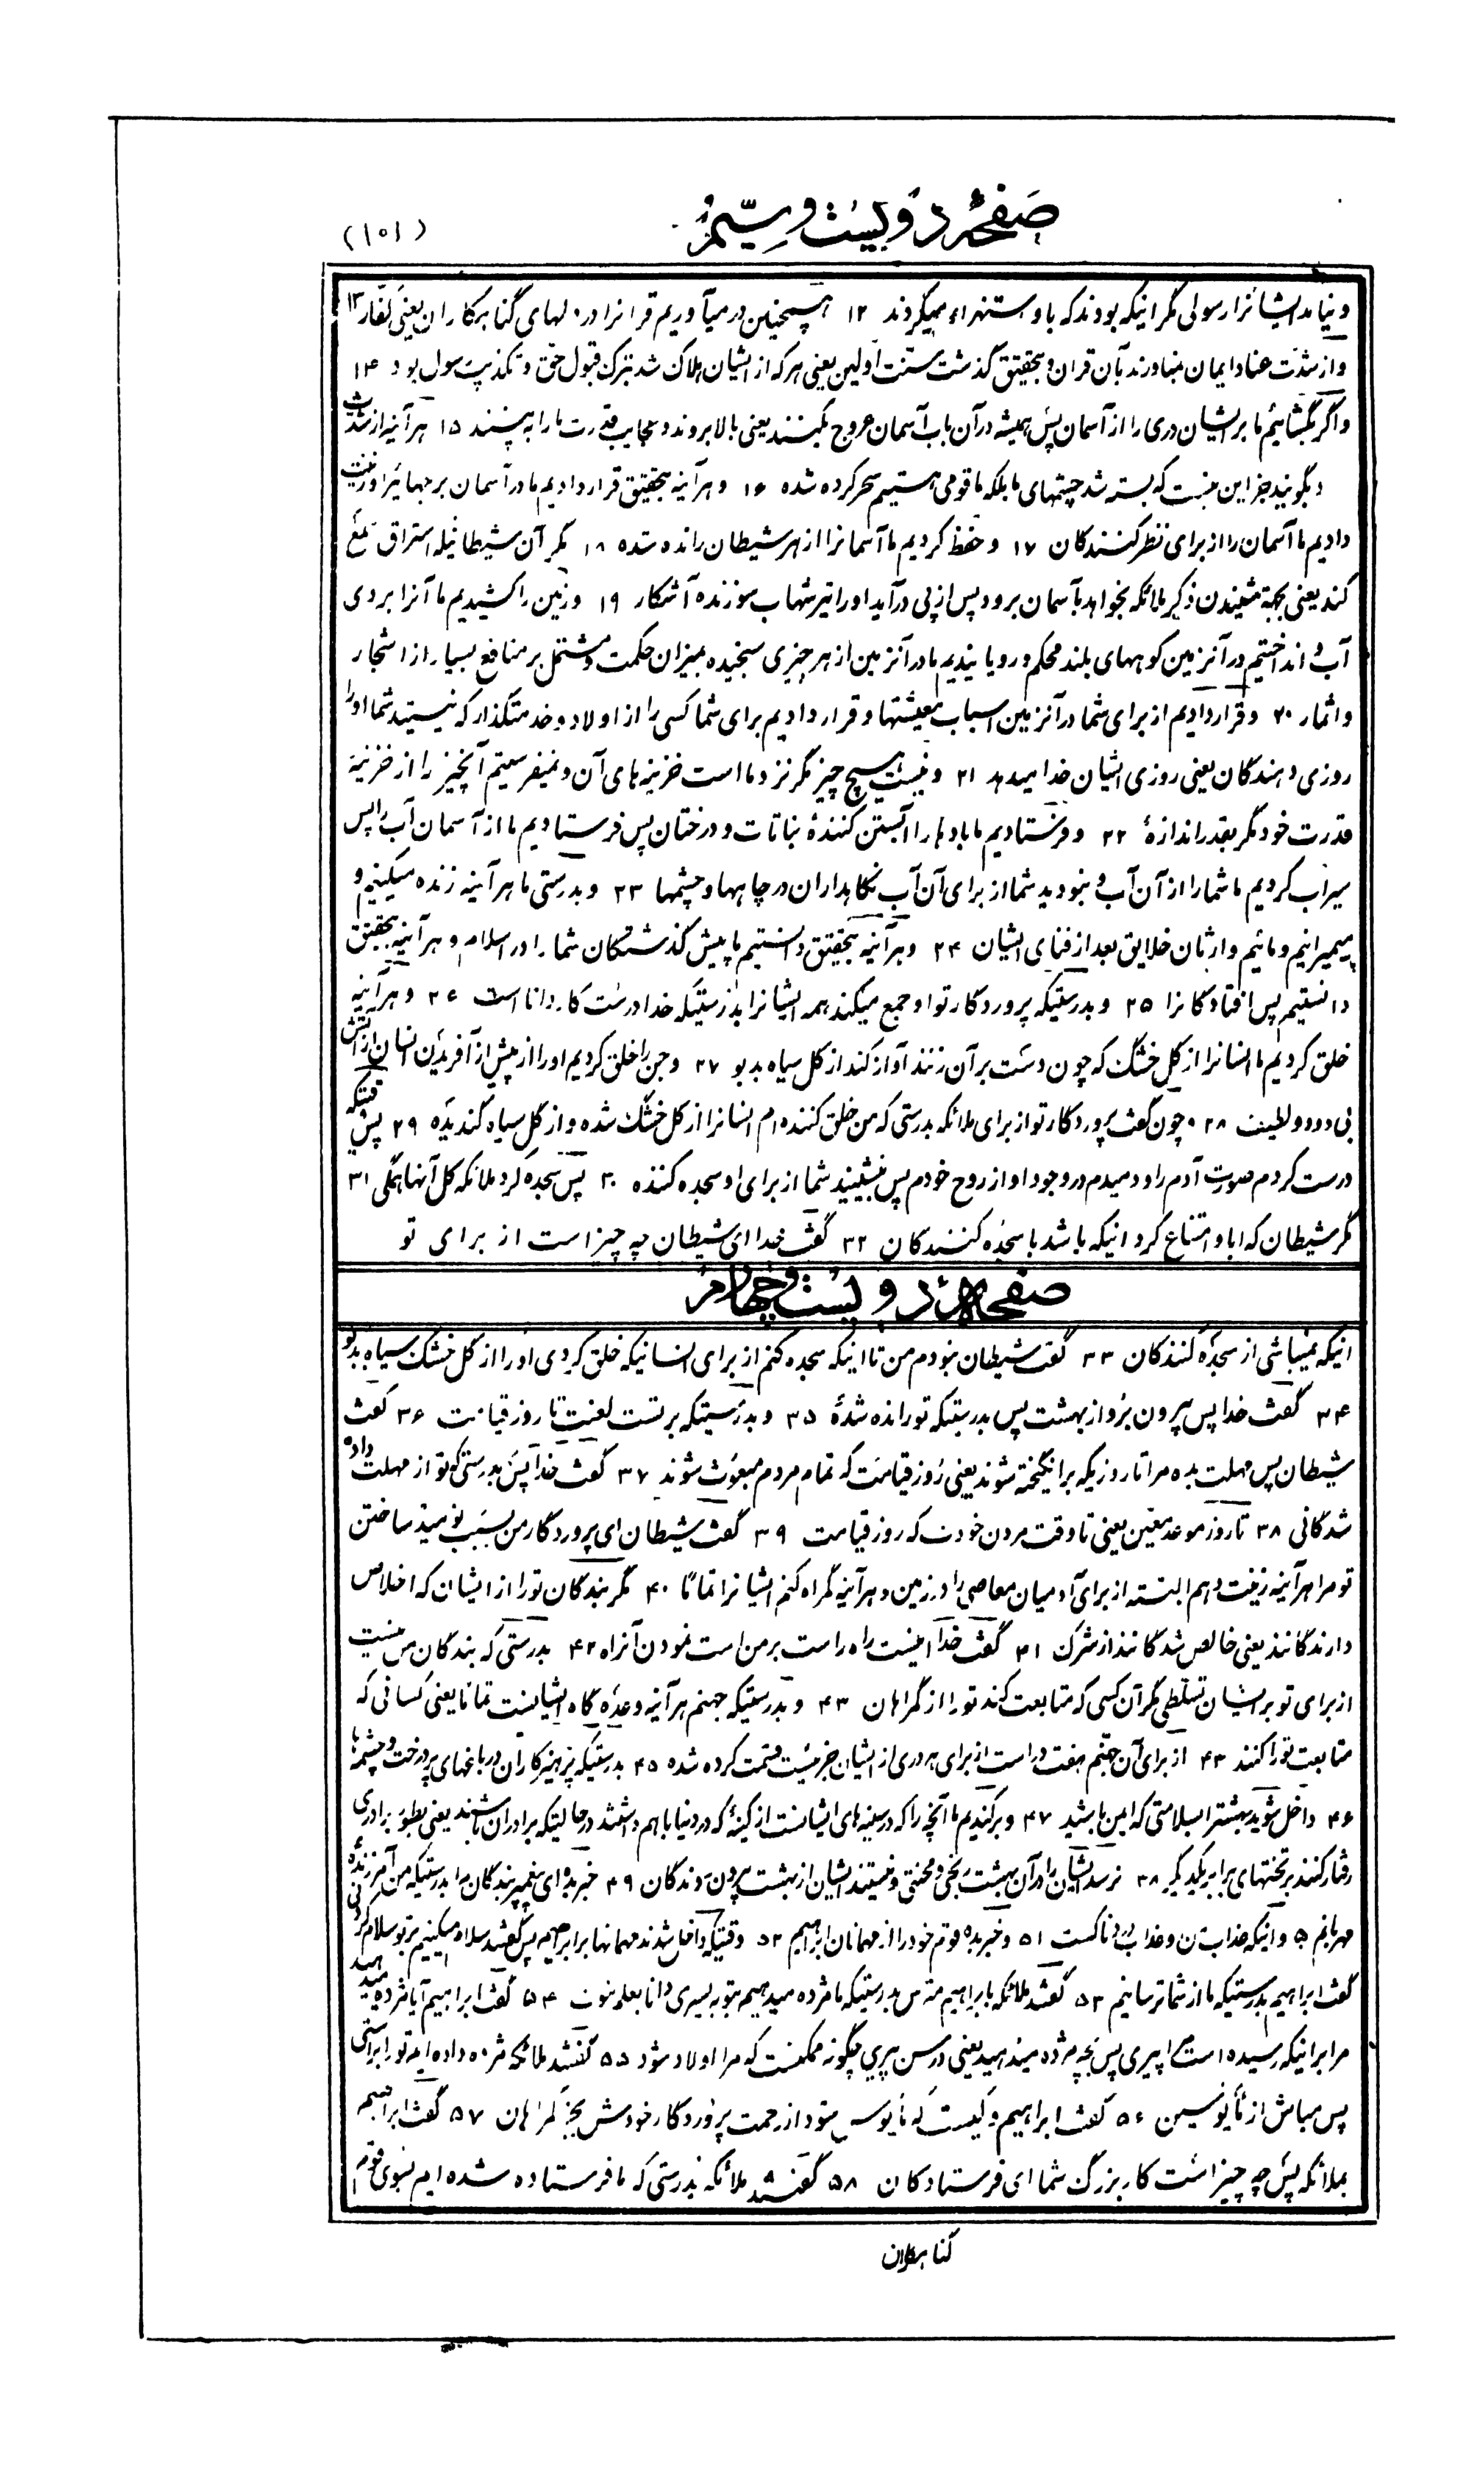 صفحهٔ دویست و سیّم
(۱۰۱)
و نیامد ایشانرا رسولی مگر اینکه بودند که باو استهزاء میکردند ۱۲ همچنین در میآوریم قرانرا در دلهای گناهکاران یعنی کفّار ۱۳
و از شدّت عناد ایمان نیاورند بآن قران و بتحقیق گذشت سنّت اوّلین یعنی هر که از ایشان هلاک شد بترک قبول حق و تکذیب رسول بود ۱۴
و اگر بگشائیم ما بر ایشان دری را از آسمان پس همیشه در آن باب آسمان عروج کنند یعنی بالا روند و عجایب قدرت ما را به بینند ۱۵ هر آینه از شدّت
و بگویند جز این نیست که بسته شد چشمهای ما بلکه ما قومی هستیم سحر کرده شده ۱۶ و هر آینه بتحقیق قرار دادیم ما در آسمان برجهائیرا و زینت
دادیم ما آسمان را از برای نظر کنندگان ۱۷ و حفظ کردیم ما آسمانرا از هر شیطان رانده شده ۱۸ مگر آن شیطانیکه استراق سمع
کند یعنی بجهة شنیدن ذکر ملائکه بخواهد بآسمان برود پس از پی درآید او را تیر شهاب سوزنده آشکار ۱۹ و زمین را کشیدیم ما آنرا بر روی
آب و انداختیم در آنزمین کوههای بلند محکم و رویانیدیم ما در آنزمین از هر چیزی سنجیده بمیزان حکمت و مشتمل بر منافع بسیار از اشجار
و اثمار ۲۰ و قرار دادیم از برای شما در آنزمین اسباب معیشتها و قرار دادیم برای شما کسی را از اولاد و خدمتگذار که نیستید شما او را
روزی دهندگان یعنی روزی ایشان خدا میدهد ۲۱ و نیست هیچ چیز مگر نزد ما است خزینه های آن و نمیفرستیم آنچیز را از خزینهٔ
قدرت خود مگر بقدر اندازهٔ ۲۲ و فرستادیم ما بادها را آبستن کنندهٔ نباتات و درختان پس فرستادیم ما از آسمان آب را پس
سیراب کردیم ما شما را از آن آب و نبودید شما از برای آن آب نگاهداران در چاهها و چشمها ۲۳ و بدرستی ما هر آینه زنده میکنیم و
میمیرانیم و مائیم وارثان خلایق بعد از فنای ایشان ۲۴ و هر آینه بتحقیق دانستیم ما پیش گذشتگان شما را در اسلام و هر آینه بتحقیق
دانستیم پس افتادگانرا ۲۵ و بدرستیکه پروردگار تو او جمع میکند همه ایشانرا بدرستیکه خدا درست کار دانا است ۲۶ و هر آینه
خلق کردیم ما انسانرا از گل خشگ که چون دست بر آن زنند آواز کند از گل سیاه بدبو ۲۷ و جن را خلق کردیم او را از پیش از آفریدن انسان از آتش
بی دود و لطیف ۲۸ و چون گفت پروردگار تو از برای ملائکه بدرستی که من خلق کننده ام انسانرا از گل خشگ شده و از گل سیاه گندیده ۲۹ پس وقتیکه
درست کردم صورت آدم را و دمیدم در وجود او از روح خودم پس بنشینید شما از برای او سجده کننده ۳۰ پس سجده کرد ملائکه کل آنها همگی ۳۱
مگر شیطان که ابا و امتناع کرد اینکه باشد با سجده کنندگان ۳۲ گفت خدا ای شیطان چه چیز است از برای تو
صفحهٔ دویست و چهارم
اینکه نمیباشی از سجده کنندگان ۳۳ گفت شیطان نبودم من تا اینکه سجده کنم از برای انسانیکه خلق کردی او را از گل خشک سیاه بدبو
۳۴ گفت خدا پس بیرون برو از بهشت پس بدرستیکه تو رانده شدهٔ ۳۵ و بدرستیکه بر تست لعنت تا روز قیامت ۳۶ گفت
شیطان پس مهلت بده مرا تا روزیکه برانگیخته شوند یعنی روز قیامت که تمام مردم مبعوث شوند ۳۷ گفت خدا پس بدرستی که تو از مهلت داده
شدگانی ۳۸ تا روز موعد معین یعنی تا وقت مردن خودت که روز قیامت ۳۹ گفت شیطان ای پروردگار من بسبب نومید ساختن
تو مرا هر آینه زینت دهم البته از برای آدمیان معاصی را در زمین و هر آینه گمراه کنم ایشانرا تماماً ۴۰ مگر بندگان تو را از ایشان که اخلاص
دارندگانند یعنی خالص شدگانند از شرک ۴۱ گفت خدا اینست راه راست بر من است نمودن آنراه ۴۲ بدرستی که بندگان من نیست
از برای تو بر ایشان تسلطی مگر آن کسی که متابعت کند تو را از گمراهان ۴۳ و بدرستیکه جهنم هر آینه وعده گاه ایشانست تماماً یعنی کسانی که
متابعت تو را کنند ۴۴ از برای آن جهنم هفت در است از برای هر دری از ایشان جزئیست قسمت کرده شده ۴۵ بدرستیکه پرهیزکاران در باغهای پر درخت و چشمه ها
۴۶ داخل شوید بهشترا بسلامتی که ایمن باشید ۴۷ و برکندیم ما آنچه را که در سینه های ایشانست از کینهٔ که در دنیا با هم داشتند در حالتیکه برادران باشند یعنی بطور برادری
رفتار کنند بر تختهای برابر یکدیگر ۴۸ نرسد ایشان را در آن بهشت رنجی و محنتی و نیستند ایشان از بهشت بیرون روندگان ۴۹ خبر بده ای پیغمبر بندگان مرا بدرستیکه من آمرزنده
مهربانم ۵۰ و اینکه عذاب من و عذاب دردناکست ۵۱ و خبر بده قوم خود را از مهمانان ابراهیم ۵۲ وقتیکه داخل شدند مهمانها بر ابراهیم پس گفتند سلام میکنیم بر تو سلام کردنی
گفت ابراهیم بدرستیکه ما از شما ترسانیم ۵۳ گفتند ملائکه بابراهیم مترس بدرستیکه ما مژده میدهیم بتو به پسری دانا بعلم نبوت ۵۴ گفت ابراهیم آیا مژده میدهید
مرا بر اینکه رسیده است مرا پیری پس بچه مژده میدهید یعنی در سن پیری چگونه ممکنست که مرا اولاد شود ۵۵ گفتند ملائکه مژده داده ایم تو را براستی
پس مباش از مأیوسین ۵۶ گفت ابراهیم و کیست که مأیوس شود از رحمت پروردگار خودش بجز گمراهان ۵۷ گفت ابراهیم
بملائکه پس چه چیز است کار بزرگ شما ای فرستادگان ۵۸ گفتند ملائکه بدرستی که ما فرستاده شده ایم بسوی قوم
گناهکاران